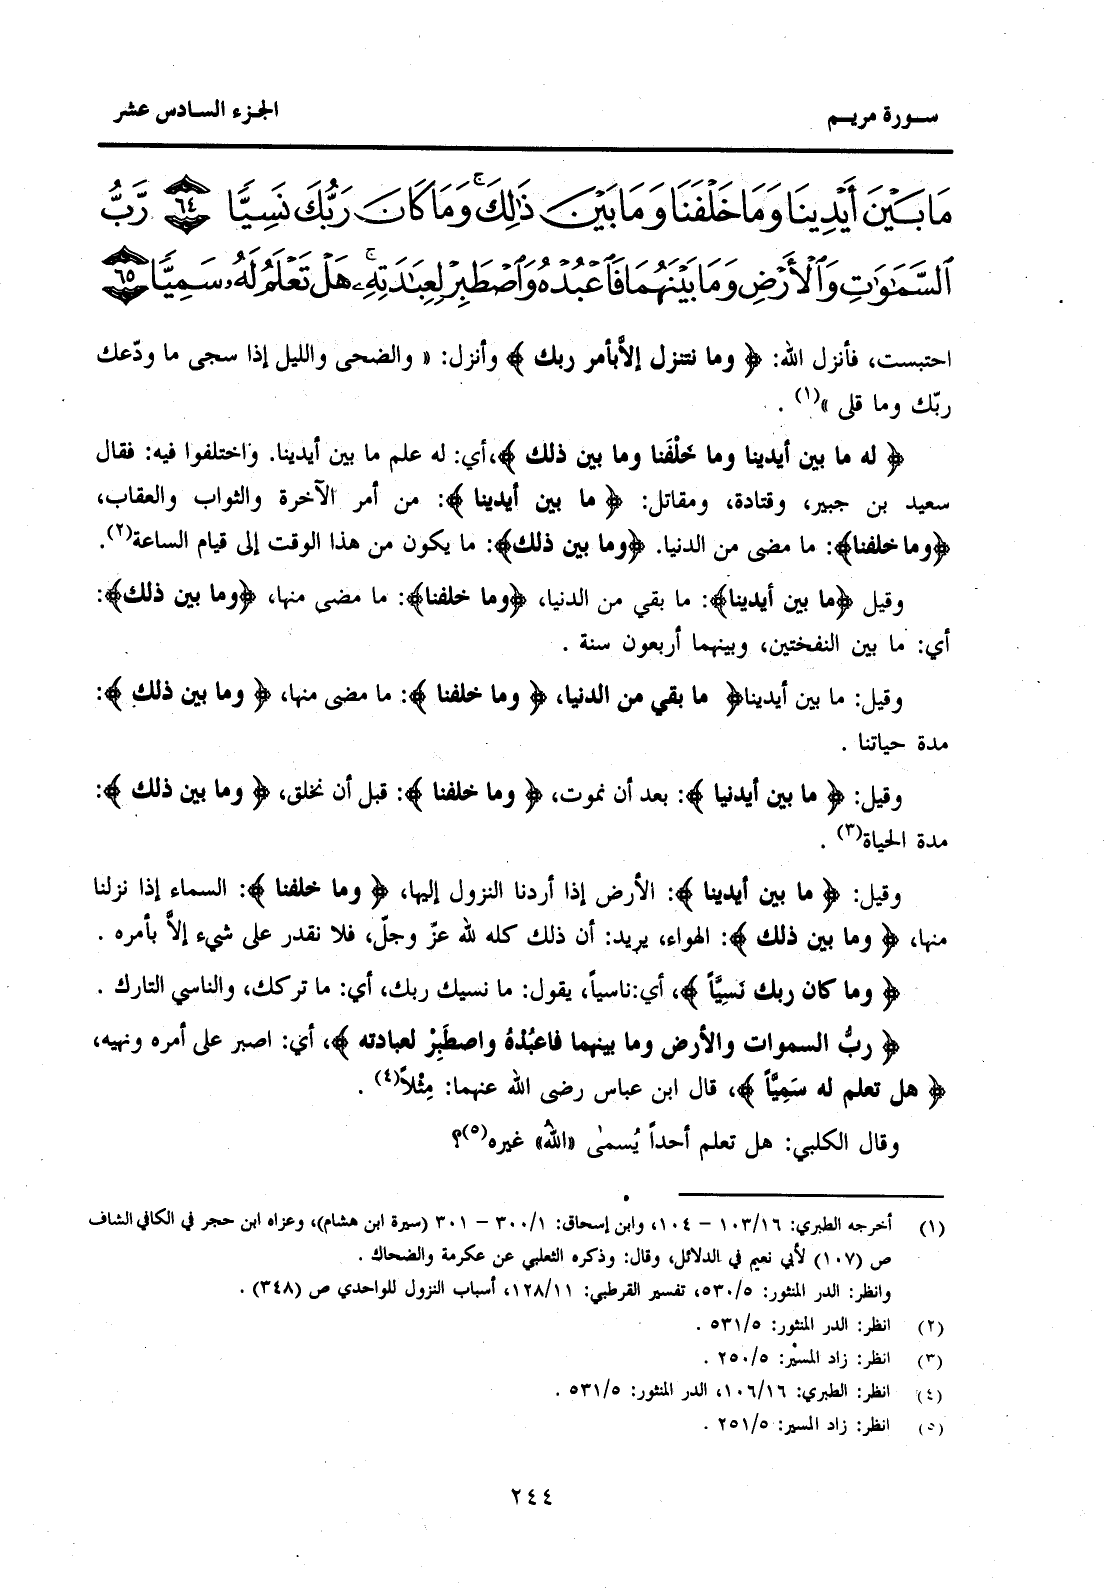 سورة مريم
الجزء السادس عشر
مَا بَيْنَ أَيْدِينَا وَمَا خَلْفَنَا وَمَا بَيْنَ ذَٰلِكَ ۚ وَمَا كَانَ رَبُّكَ نَسِيًّا ٦٤ رَّبُّ
السَّمَٰوَٰتِ وَالْأَرْضِ وَمَا بَيْنَهُمَا فَاعْبُدْهُ وَاصْطَبِرْ لِعِبَٰدَتِهِ ۚ هَلْ تَعْلَمُ لَهُ سَمِيًّا ٦٥
احتبست، فأنزل الله: ﴿ وما نتنزل إلاَّبأمر ربك ﴾ وأنزل: « والضحى والليل إذا سجى ما ودّعك
ربّك وما قلى »(١) .
﴿ له ما بين أيدينا وما خَلْفَنا وما بين ذلك ﴾،أي: له علم ما بين أيدينا. واختلفوا فيه: فقال
سعيد بن جبير، وقتادة، ومقاتل: ﴿ ما بين أيدينا ﴾: من أمر الآخرة والثواب والعقاب،
﴿وما خلفنا﴾: ما مضى من الدنيا. ﴿وما بين ذلك﴾: ما يكون من هذا الوقت إلى قيام الساعة(٢).
وقيل ﴿ما بين أيدينا﴾: ما بقي من الدنيا، ﴿وما خلفنا﴾: ما مضى منها، ﴿وما بين ذلك﴾:
أي: ما بين النفختين، وبينهما أربعون سنة .
وقيل: ما بين أيدينا﴿ ما بقي من الدنيا، ﴿ وما خلفنا ﴾: ما مضى منها، ﴿ وما بين ذلك ﴾:
مدة حياتنا .
وقيل: ﴿ ما بين أيدنيا ﴾: بعد أن نموت، ﴿ وما خلفنا ﴾: قبل أن نخلق، ﴿ وما بين ذلك ﴾:
مدة الحياة(٣) .
وقيل: ﴿ ما بين أيدينا ﴾: الأرض إذا أردنا النزول إليها، ﴿ وما خلفنا ﴾: السماء إذا نزلنا
منها، ﴿ وما بين ذلك ﴾: الهواء، يريد: أن ذلك كله لله عزّ وجلّ، فلا نقدر على شيء إلاَّ بأمره .
﴿ وما كان ربك نَسِيَّاً ﴾، أي:ناسياً، يقول: ما نسيك ربك، أي: ما تركك، والناسي التارك .
﴿ ربُّ السموات والأرض وما بينهما فاعبُدْهُ واصطَبِرْ لعبادته ﴾، أي: اصبر على أمره ونهيه،
﴿ هل تعلم له سَمِيَّاً ﴾، قال ابن عباس رضى الله عنهما: مِثْلاً(٤) .
وقال الكلبي: هل تعلم أحداً يُسمىٰ «اللهُ» غيره(٥)؟
(١) أخرجه الطبري: ١٠٣/١٦ – ١٠٤، وابن إسحاق: ٣٠٠/١ – ٣٠١ (سيرة ابن هشام)، وعزاه ابن حجر في الكافي الشاف
ص (١٠٧) لأبي نعيم في الدلائل، وقال: وذكره الثعلبي عن عكرمة والضحاك .
وانظر: الدر المنثور: ٥٣٠/٥، تفسير القرطبي: ١٢٨/١١، أسباب النزول للواحدي ص (٣٤٨) .
(٢) انظر: الدر المنثور: ٥٣١/٥ .
(٣) انظر: زاد المسير: ٢٥٠/٥ .
(٤) انظر: الطبري: ١٠٦/١٦، الدر المنثور: ٥٣١/٥ .
(٥) انظر: زاد المسير: ٢٥١/٥ .
٢٤٤